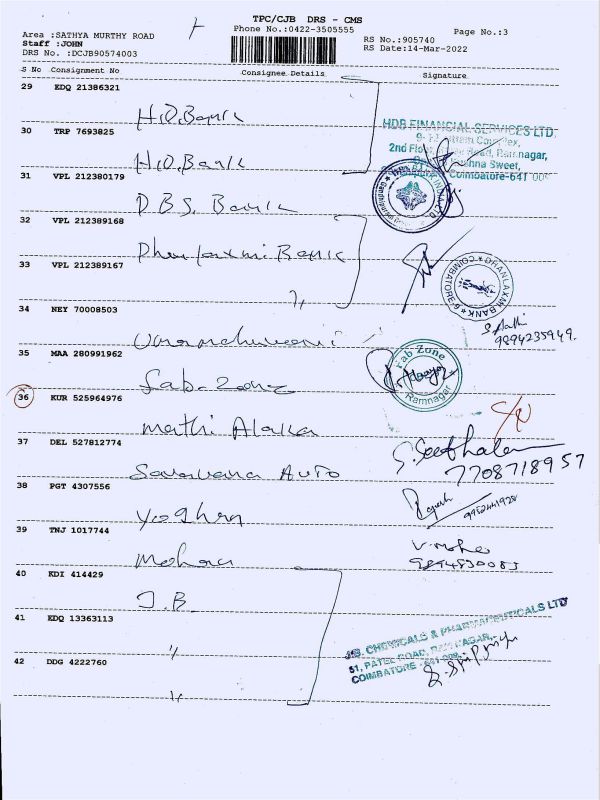 TPC/CJB DRS - CMS
Phone No.:0422-3505555
Page No.:3
Area :SATHYA MURTHY ROAD
Staff :JOHN
DRS No. :DCJB90574003
RS No.:905740
RS Date:14-Mar-2022
S No Consignment No Consignee Details Signature
29 EDQ 21386321
H.D. Bank
30 TRP 7693825
H.D. Bank
HDB FINANCIAL SERVICES LTD.
2nd Floor, Road, Ramnagar,
Sweet,
Coimbatore-641 009
31 VPL 212380179
D.B.S. Bank
32 VPL 212389168
Dhanlaxmi Bank
33 VPL 212389167
"
DHANLAXMI BANK
COIMBATORE-9
34 NEY 70008503
9894235949.
35 MAA 280991962
Fab-Zone
Fab Zone
Ramnagar
36 KUR 525964976
Mathi Alaka
37 DEL 527812774
Saravana Auto
7708718957
38 PGT 4307556
39 TNJ 1017744
Mohan
40 KDI 414429
J.B.
41 EDQ 13363113
"
J.B. CHEMICALS & PHARMACEUTICALS LTD
51, PATEL ROAD, RAM NAGAR,
COIMBATORE - 641 009.
42 DDG 4222760
"